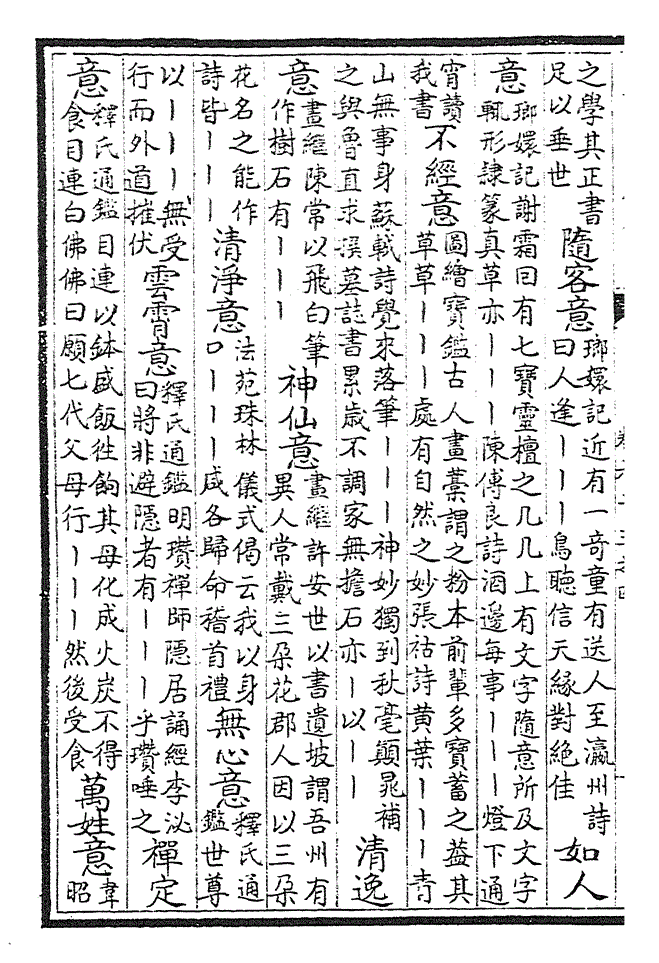 之學其正書足以垂世隨客意瑯嬛記近有一奇童有送人至瀛州詩曰人逢丨丨丨鳥聽信天緣對絕佳如人
意瑯嬛記謝霜曰有七寶靈檀之几几上有文字隨意所及文字輒形隷篆真草亦丨丨丨陳傅良詩酒邊每事丨丨丨燈下通
宵讀我書不經意圖繪寶鑑古人畫藁謂之粉本前輩多寶蓄之葢其草草丨丨丨處有自然之妙張祜詩黃葉丨丨丨青
山無事身蘇軾詩覺來落筆丨丨丨神妙獨到秋毫顛晁補之與魯直求撰墓誌書累歲不調家無擔石亦丨以丨丨清逸
意畫繼陳常以飛白筆作樹石有丨丨丨神仙意畫繼許安世以書遺坡謂吾州有異人常戴三朶花郡人因以三朶
花名之能作詩皆丨丨丨清淨意法苑珠林儀式偈云我以身口丨丨丨咸各歸命稽首禮無心意釋氏通鑑世尊
以丨丨丨無受行而外道摧伏雲霄意釋氏通鑑明瓚禪師隠居誦經李泌曰將非避隱者有丨丨丨乎瓚唾之禪定
意釋氏通鑑目連以鉢盛飯徃餉其母化成火炭不得食目連白佛佛曰願七代父母行丨丨丨然後受食萬姓意韋昭